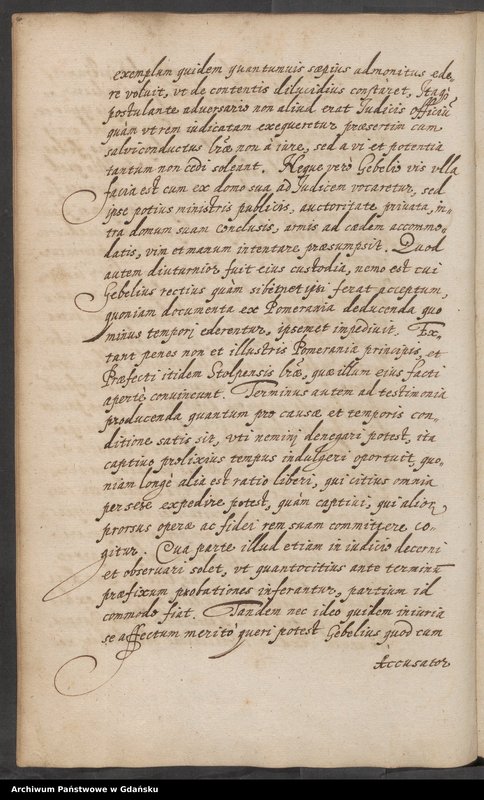 exemplum quidem quantumuis sæpius admonitus ede,
re voluit, vt de contentis dilucidius constaret, Itaq3
postulante aduersario non aliud erat Iudicis officiũ
quàm vt rem iudicatam exequeretur præsertim cum
salviconductus lr̃æ non à iure, sed a vi et potentia
tantum non cedi soleant. Neque verò Gebelio vis vlla
facta est cum ex domo sua ad Iudicem vocaretur, sed
ipse potius ministris publicis, auctoritate priuata, in,
tra domum suam conclusis, armis ad cædem accommo,
datis, vim et manum intentare præsumpsit. Quod
autem diuturnior fuit eius custodia, nemo est cui
Gebelius rectius quàm sibimet ipsi ferat acceptum,
quoniam documenta ex Pomerania deducenda quo
minus temporj ederentur, ipsemet impediuit. Ex,
tant penes nos et illustris Pomerania principis, et
Præfecti itidem Stolpensis lr̃æ, quæ illum eius facti
apertè conuincunt. Terminus autem ad testimonia
producenda quantum pro causæ et temporis con,
ditione satis sit, vti neminj denegari potest, ita
captiuo prolixius tempus indulgeri oportuit, quo,
niam longè alia est ratio liberi, qui citius omnia
per sese expedire potest, quàm captiui, qui alior
prorsus operæ ac fidei rem suam committere co,
gitur. Qua parte illud etiam in iudicio decerni
et obseruari solet, vt quantocitius ante terminũ
præfixum probationes inferantur, partium id
commodo fiat. Tandem nec ideo quidem iniuria
se affectum meritò queri potest Gebelius quod cum
Accusator
Archiwum Państwowe w Gdańsku